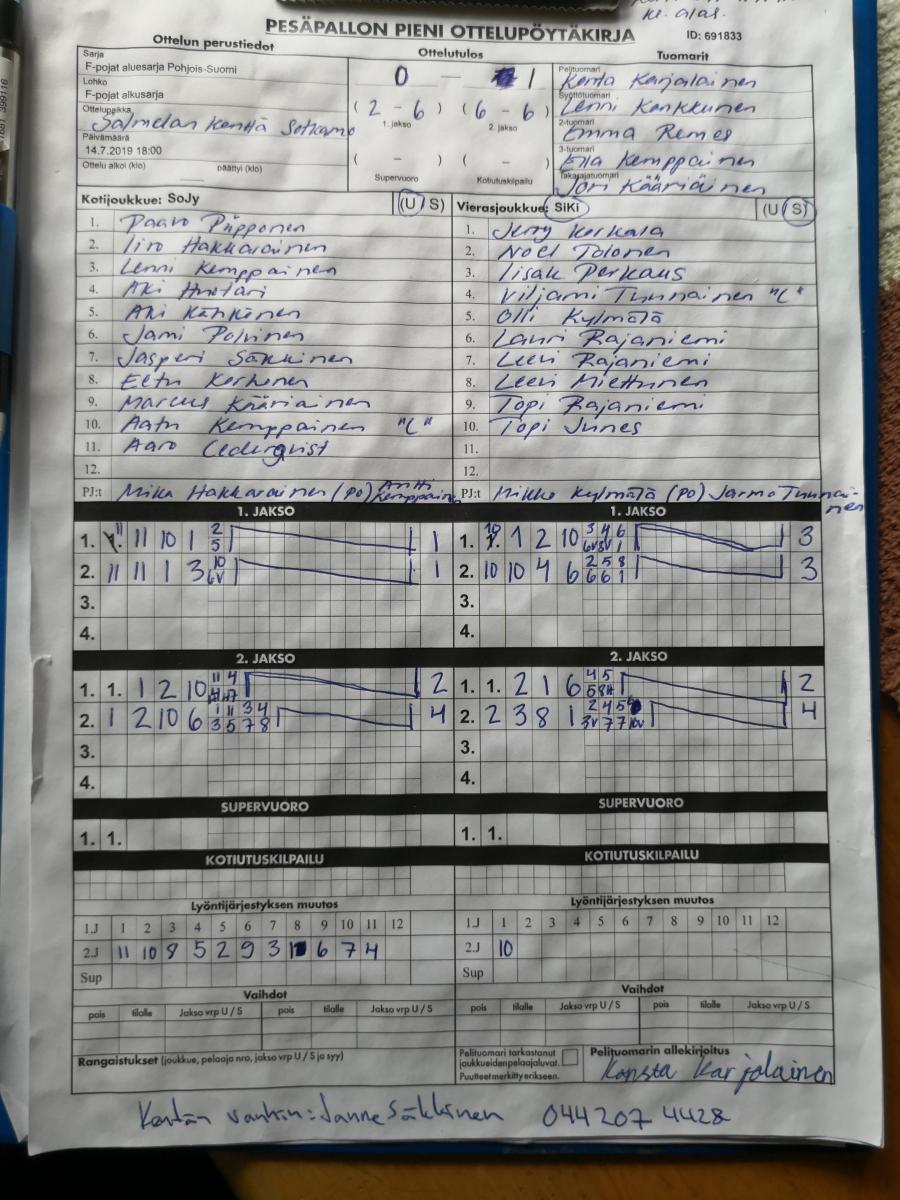 ke. alas.
PESÄPALLON PIENI OTTELUPÖYTÄKIRJA
ID: 691833
Ottelun perustiedot
Ottelutulos
Tuomarit
Sarja
F-pojat aluesarja Pohjois-Suomi
Lohko
F-pojat alkusarja
Ottelupaikka
Salmelan Kenttä Sotkamo
Päivämäärä
14.7.2019 18:00
Ottelu alkoi (klo) päättyi (klo)
0 — 1
(2 - 6) (6 - 6)
1. jakso 2. jakso
( - ) ( - )
Supervuoro Kotiutuskilpailu
Pelituomari
Karjalainen
Syöttötuomari
Lenni Kenkkunen
2-tuomari
Emma Remes
3-tuomari
Ella Kemppainen
Takarajatuomari
Jori Kääriäinen
Kotijoukkue: SoJy (U / S)
1. Paavo Piipponen
2. Iiro Hakkarainen
3. Lenni Kemppainen
4. Aki Huotari
5. Aki Kähkönen
6. Jami Polvinen
7. Jasperi Säkkinen
8. Eetu Korhonen
9. Marcus Kääriäinen
10. Aatu Kemppainen "C"
11. Aaro Cederqvist
12.
PJ:t Mika Hakkarainen (PO) Antti Kemppainen
Vierasjoukkue: SiKi (U / S)
1. Jerry Kerkala
2. Noel Tolonen
3. Iisak Perkaus
4. Viljami Tunnainen "C"
5. Olli Kylmälä
6. Lauri Rajaniemi
7. Leevi Rajaniemi
8. Leevi Miettunen
9. Topi Rajaniemi
10. Topi Junes
11.
12.
PJ:t Mikko Kylmälä (PO) Jarmo Tunnainen
1. JAKSO
1. 11 11 10 1 2 5 1
2. 11 11 1 3 10 6V 1
3.
4.
1. JAKSO
1. 10 1 2 10 3 4 6 6V 8V 1 3
2. 10 10 4 6 2 5 8 6 6 1 3
3.
4.
2. JAKSO
1. 1. 1 2 10 11 4 2
2. 1 2 10 6 1 11 3 4 3 5 7 8 4
3.
4.
2. JAKSO
1. 1. 2 1 6 4 5 5 8H 2
2. 2 3 8 1 2 4 5 3V 7 7 10V 4
3.
4.
SUPERVUORO
1. 1.
SUPERVUORO
1. 1.
KOTIUTUSKILPAILU
KOTIUTUSKILPAILU
Lyöntijärjestyksen muutos
1.J 1 2 3 4 5 6 7 8 9 10 11 12
2.J 11 10 8 5 2 9 3 1 6 7 4
Sup
Lyöntijärjestyksen muutos
1.J 1 2 3 4 5 6 7 8 9 10 11 12
2.J 10
Sup
Vaihdot
pois tilalle Jakso vrp U / S pois tilalle Jakso vrp U / S
Vaihdot
pois tilalle Jakso vrp U / S pois tilalle Jakso vrp U / S
Rangaistukset (joukkue, pelaaja nro, jakso vrp U / S ja syy)
Pelituomari tarkastanut
joukkueidenpelaajaluvat.
Puutteet merkitty erikseen.
Pelituomarin allekirjoitus
Konsta Karjalainen
Kentän vanhin: Janne Säkkinen 044 207 4428